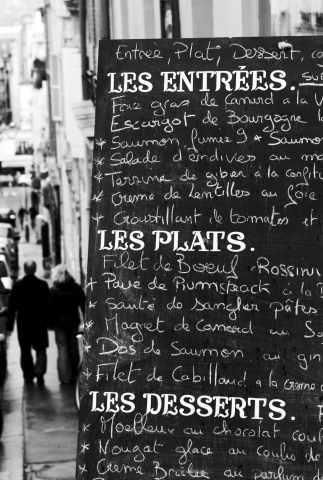 Entrée, Plat, Dessert, ca
LES ENTRÉES. su
Foie gras de Canard a la V
Escargot de Bourgogne l
* Saumon fumee 9 * Saumo
* Salade d'endives au mo
* Terrine de gibier à la confit
* Creme de Lentilles au foie
* Croustillant de tomates et
LES PLATS.
Filet de Boeuf Rossini
* Pave de Rumsteack à la
* Sauté de sanglier pâtes
* Magret de Canard au Sa
* Dos de Saumon au gin
* Filet de Cabillaud a la creme
LES DESSERTS.
* Moelleux au chocolat coul
* Nougat glacé au coulis de
* Creme Brulée au parfum d